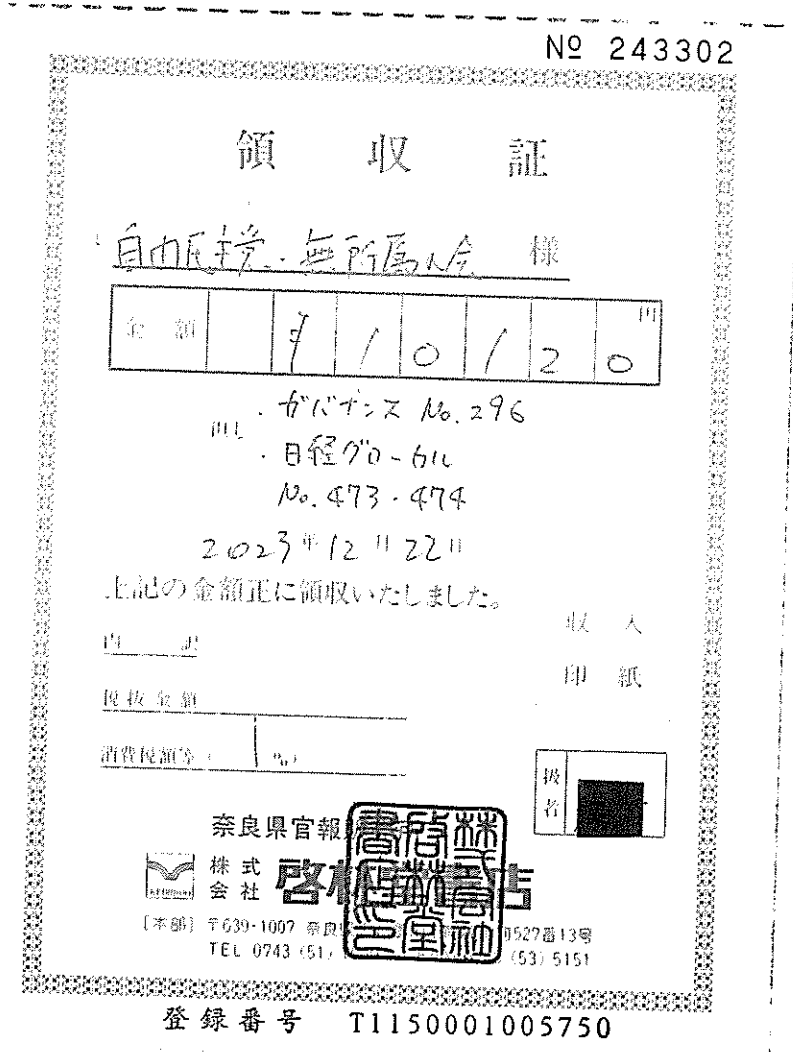 № 243302
領収証
自由民主党・無所属の会 様
金額 ¥10120 円
但し ・ガバナンス No.296
・日経グローカル
No.473・474
2023年12月22日
上記の金額正に領収いたしました。
収入
印紙
内訳
税抜金額
消費税額等( %)
扱者
奈良県官報
株式会社 啓林堂書店
株式会社啓林堂書店印
〔本部〕〒639-1007 奈良 527番13号
TEL 0743 (51) (53) 5151
登録番号 T1150001005750